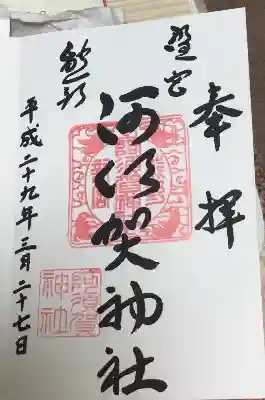 奉拝
阿須賀神社
熊野
平成二十九年三月二十七日
阿須賀
神社